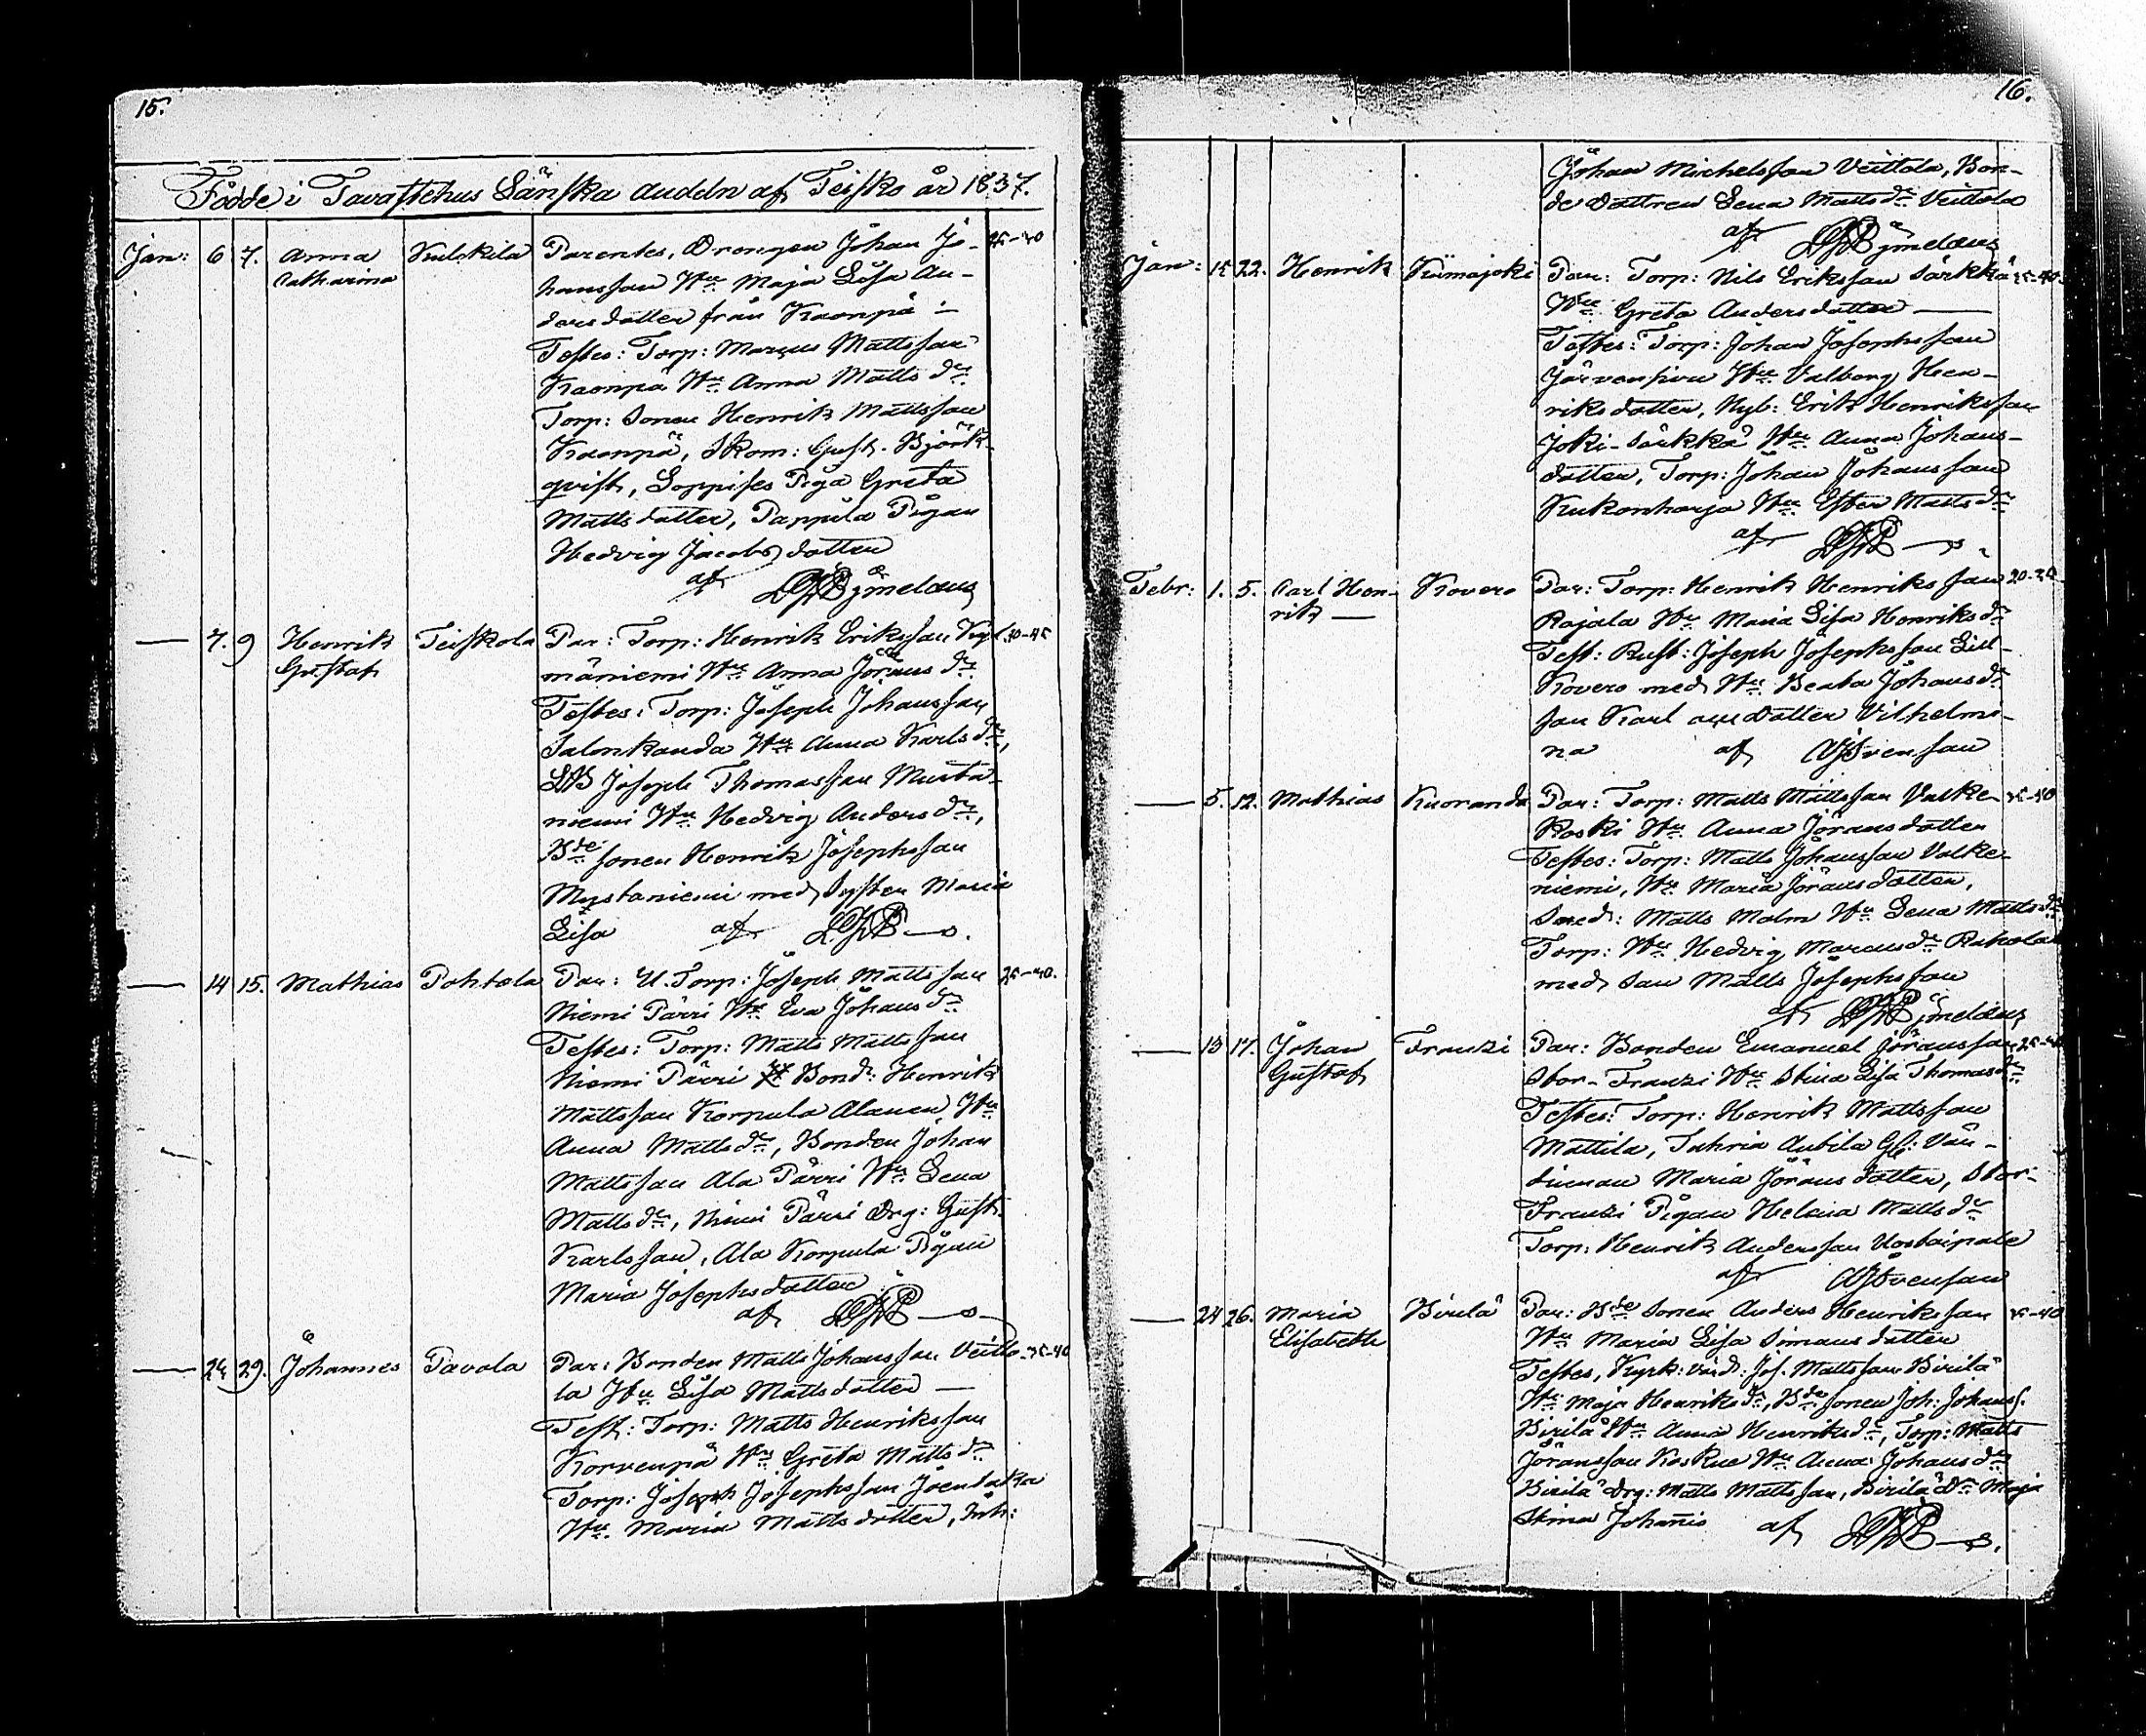 15.
Födde i Tavastehus Länska andeln af Teisko år 1837.
Jan: 6 7. Anna Kulkkila Parentes, Drengen Johan Jo- 35-40
Catharina hansson H:u Maja Lisa An-
dersdotter från Kaanpä
Testes: Torp: Marcus Mattsson
Kaanpä H:u Anna Matts d:r
Torp: Sonen Henrik Mattsson
Kaanpä, Skom: Gust. Björk-
qvist, Soppises Piga Greta
Mattsdotter, Pappila Pigan
Hedvig Jacobsdotter
af
— 7. 9 Henrik Teiskola Par: Torp: Henrik Eriksson
Gustaf mäniemi H:u Anna Jörans d:r
Testes: Torp: Joseph Johansson
Salonkanda H:u Anna Karls d:r,
Joseph Thomasson Musta-
niemi H:u Hedvig Anders d:r,
B:de sonen Henrik Josephsson
Mustaniemi med Syster Maria
Lisa af
— 14 15. Mathias Pohtola Par: U. Torp: Joseph Mattsson 25-40.
Niemi Pärri H:u Eva Johans d:r
Testes: Torp: Matts Mattsson
Niemi Pärri Bond: Henrik
Mattsson Korpula Alanen, H:u
Anna Matts d:r, Bonden Johan
Mattsson Ala Pärri H:u Lena
Matts d:r, Niemi Pärri Drg: Gust.
Karlsson, Ala Korpula Pigan
Maria Josephsdotter
af
— 24 29. Johannes Pavola Par: Bonden Matts Johansson Veitto- 35-40
la H:u Lisa Mattsdotter —
Test: Torp: Matts Henriksson
Korvenpä H:u Greta Matts d:r
Torp: Joseph Josephsson Joentaka
H:u Maria Mattsdotter, Inh:
16.
Johan Michelsson Veittola, Bon-
de dottren Lena Matts d:r Veittola
af
Jan: 15 22. Henrik Kiimajoki Par: Torp: Nils Eriksson Särkkä 25-40.
H:u Greta Andersdotter —
Testes: Torp: Johan Josephsson
Järvensivu H:u Valborg Hen-
riksdotter, Nyb: Erik Henriksson
Joki-Särkkä H:u Anna Johans-
dotter, Torp: Johan Johansson
Kukonharja H:u Ester Matts d:r
af
Febr: 1. 5. Carl Hen- Kovero Par: Torp: Henrik Henriksson
rik — Rajala H:u Maria Lisa Henriks d:r
Test: Rust: Joseph Josephsson Lill-
Kovero med H:u Beata Johans d:r
son Karl och dotter Vilhelmi-
na af Svensson
— 5. 12. Mathias Kuoranda Par: Torp: Matts Mattsson Valke- 35-40
koski H:u Anna Joransdotter
Testes: Torp: Matts Johansson Valke-
niemi, H:u Maria Joransdotter,
Smed: Matts Malm H:u Lena Matts d:r
Torp: H:u Hedvig Marcus d:r
med son Matts Josephsson
af
— 13 17. Johan Frantzi Par: Bonden Emanuel Joransson 25-40
Gustaf Stor-Frantzi H:u Stina Lisa Thomas d:r
Testes: Torp: Henrik Mattsson
Mattila,
Maria Joransdotter, Stor-
Frantzi Pigan Helena Matts d:r
Torp: Henrik Andersson
af Svensson
— 24 26. Maria Birilä Par: B:de Sonen Anders Henriksson 35-40
Elisabeth H:u Maria Lisa Simansdotter
Testes, Kyrk: värd: Jos. Mattsson Birilä
H:u Maja Henriks d:r, B:de sonen Joh: Johans s.
Birilä H:u Anna Henriks d:r, Torp: Matts
Joransson Koskue H:u Anna Johans d:r
Birilä Drg: Matts Mattsson, Birilä D:r Maja
Stina Johannis af